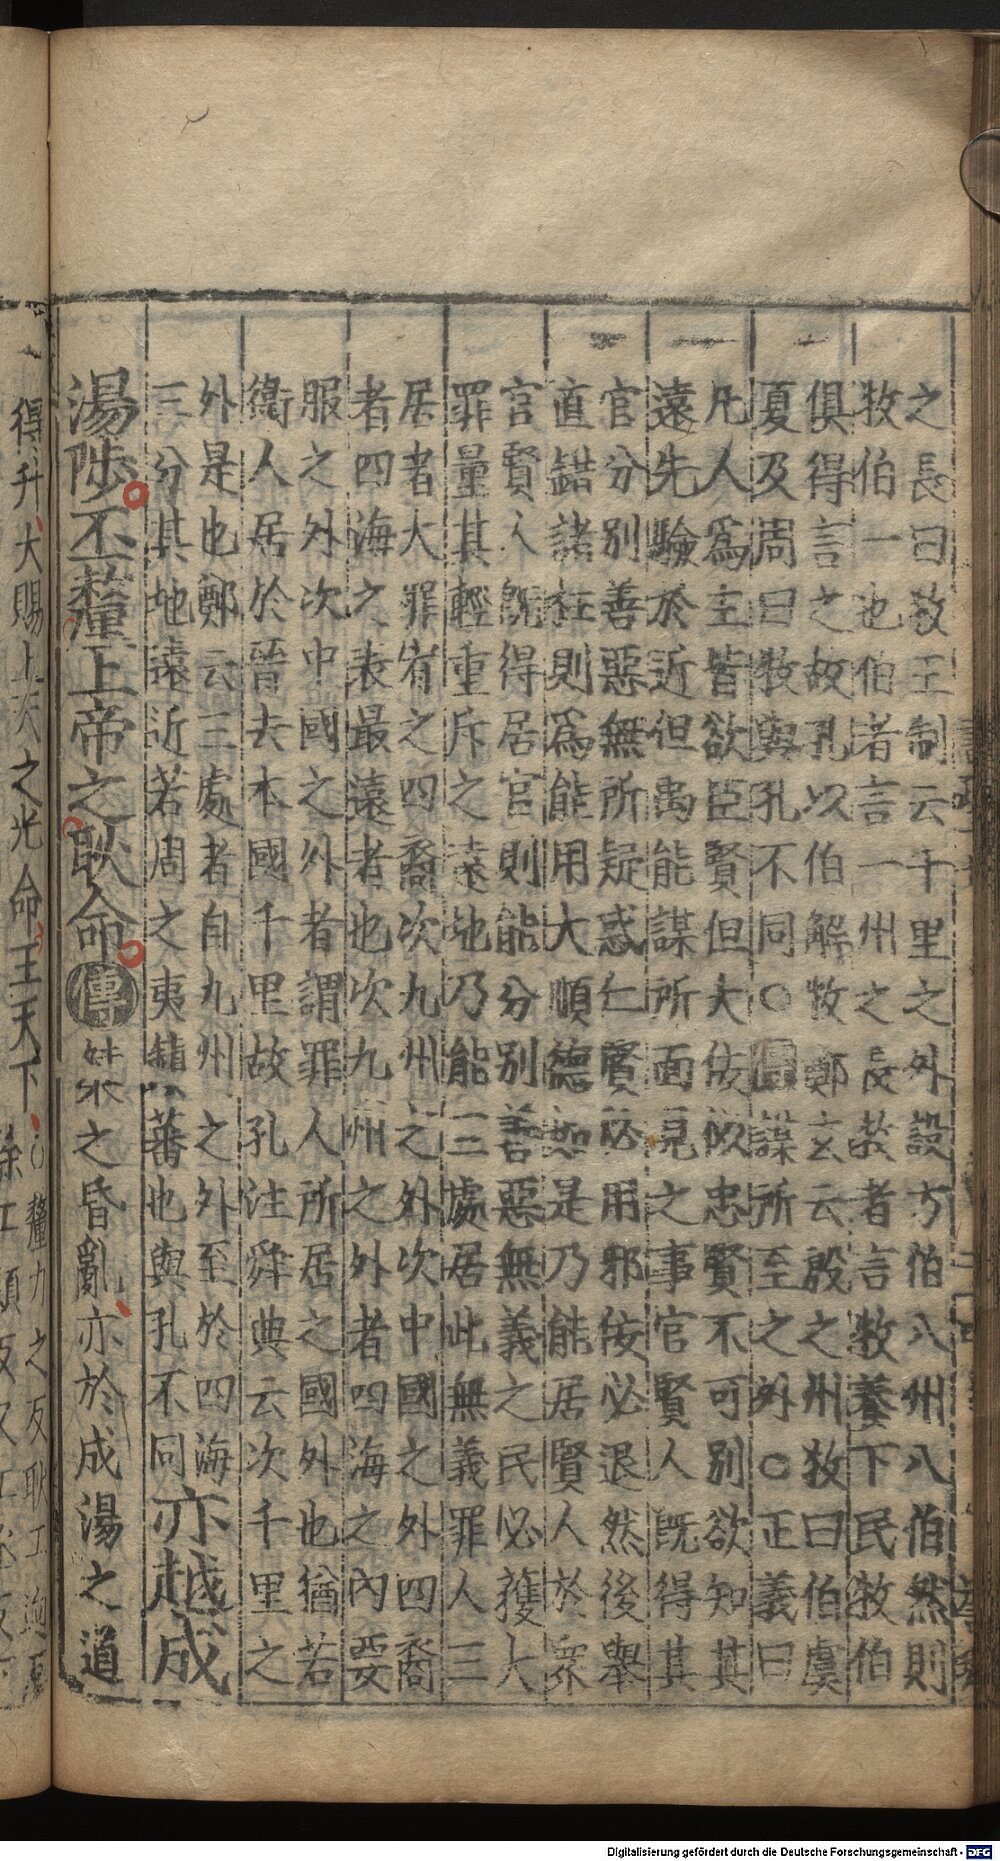 之長曰牧王制云千里之外設方伯八州八伯然則
牧伯一也伯者言一州之長牧者言牧養下民牧伯
俱得言之故孔以伯解牧鄭玄云殷之州牧曰伯虞
夏及周曰牧與孔不同○傳謀所至之外○正義曰
凡人爲主皆欲臣賢但大佞似忠賢不可別欲知其
遠先驗於近但禹能謀所面見之事官賢人旣得其
官分別善惡無所疑惑仁賢必用邪佞必退然後舉
直錯諸枉則爲能用大順德如是乃能居賢人於衆
官賢人旣得居官則能分別善惡無義之民必獲大
罪量其輕重斥之遠地乃能三處居此無義罪人三
居者大罪宥之四裔次九州之外次中國之外四裔
者四海之表最遠者也次九州之外者四海之內要
服之外次中國之外者謂罪人所居之國外也猶若
衞人居於晉去本國千里故孔注舜典云次千里之
外是也鄭云三處者自九州之外至於四海
三分其地遠近若周之夷鎮蕃也與孔不同
亦越成
湯陟丕釐上帝之耿命傳桀之昏亂亦於成湯之道
得升大賜上天之光命王天下
釐力之反耿工迥反